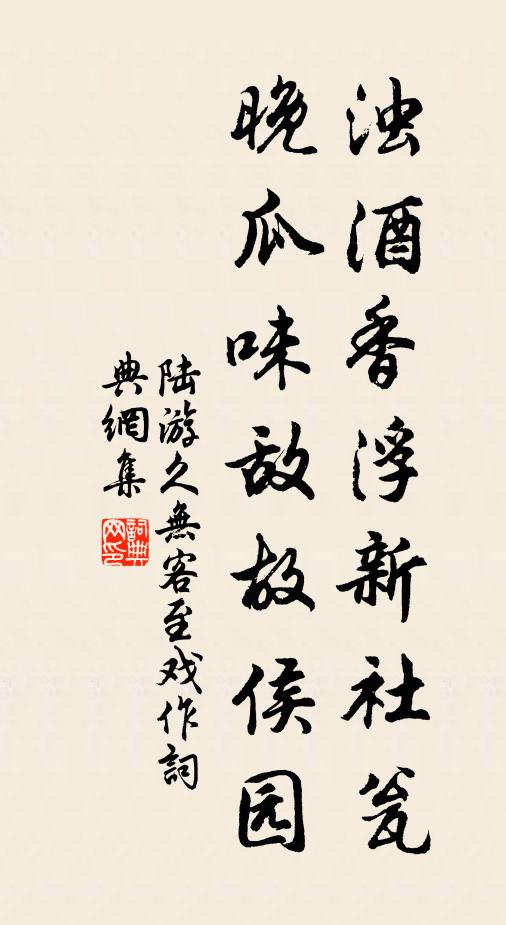 浊酒香浮新社瓮
晚瓜味敌故侯园
陆游久無客至戏作詞
典網集
詞典网印